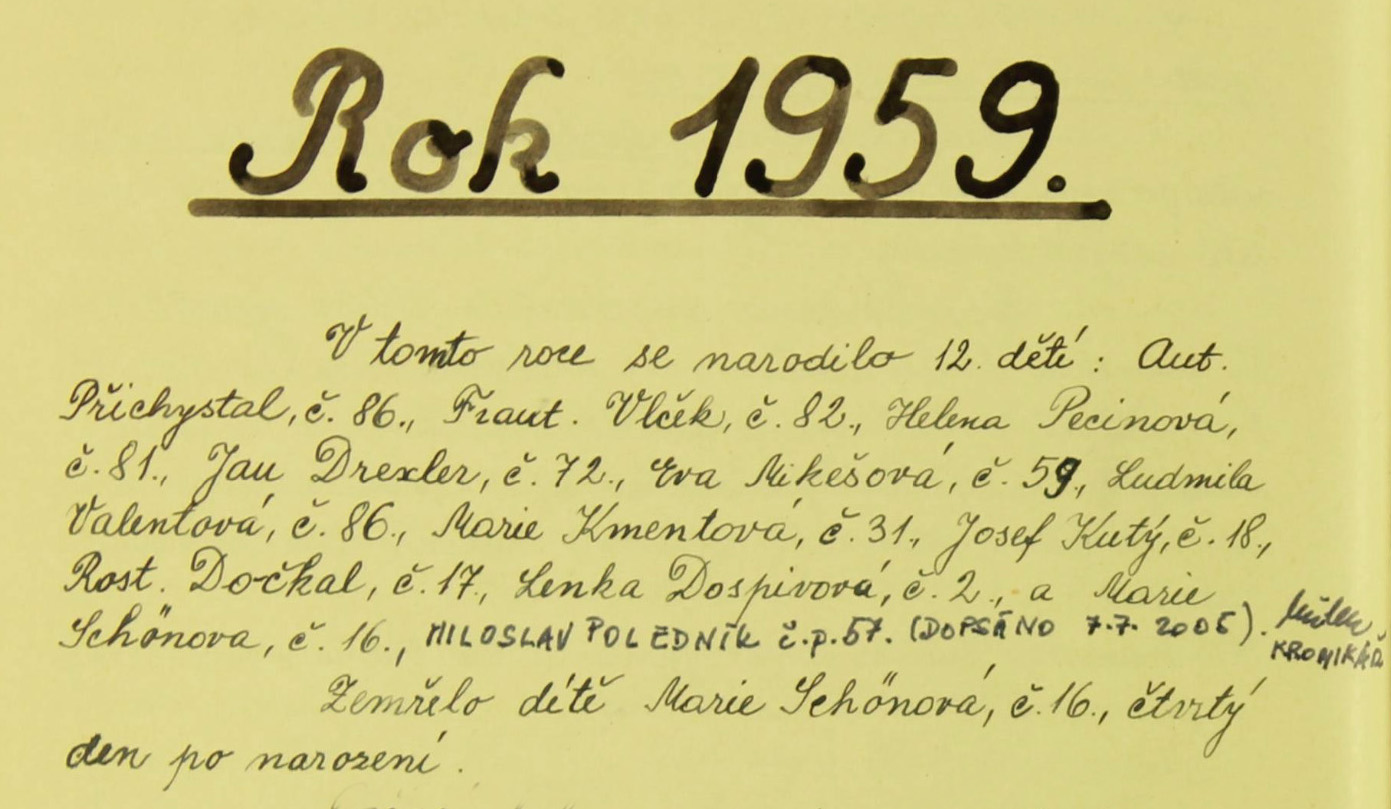 Rok 1959.
V tomto roce se narodilo 12. dětí: Ant.
Přichystal, č. 86., Frant. Vlček, č. 82., Helena Pecinová,
č. 81., Jan Drexler, č. 72., Eva Mikešová, č. 59., Ludmila
Valentová, č. 86., Marie Kmentová, č. 31., Josef Kutý, č. 18.,
Rost. Dočkal, č. 17., Lenka Dospivová, č. 2., a Marie
Schönova, č. 16., MILOSLAV POLEDNÍK č.p. 57. (DOPSÁNO 7.7. 2005).
KRONIKÁŘ
Zemřelo dítě Marie Schönová, č. 16., čtvrtý
den po narození.